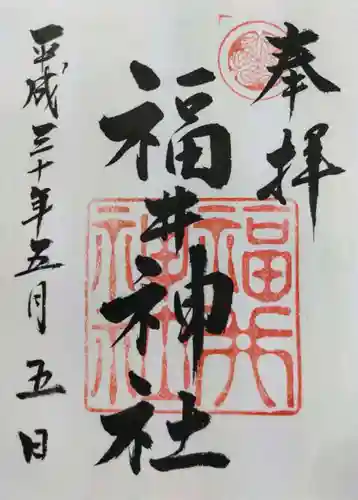 奉拝
福井神社
平成三十年五月五日
福井神社